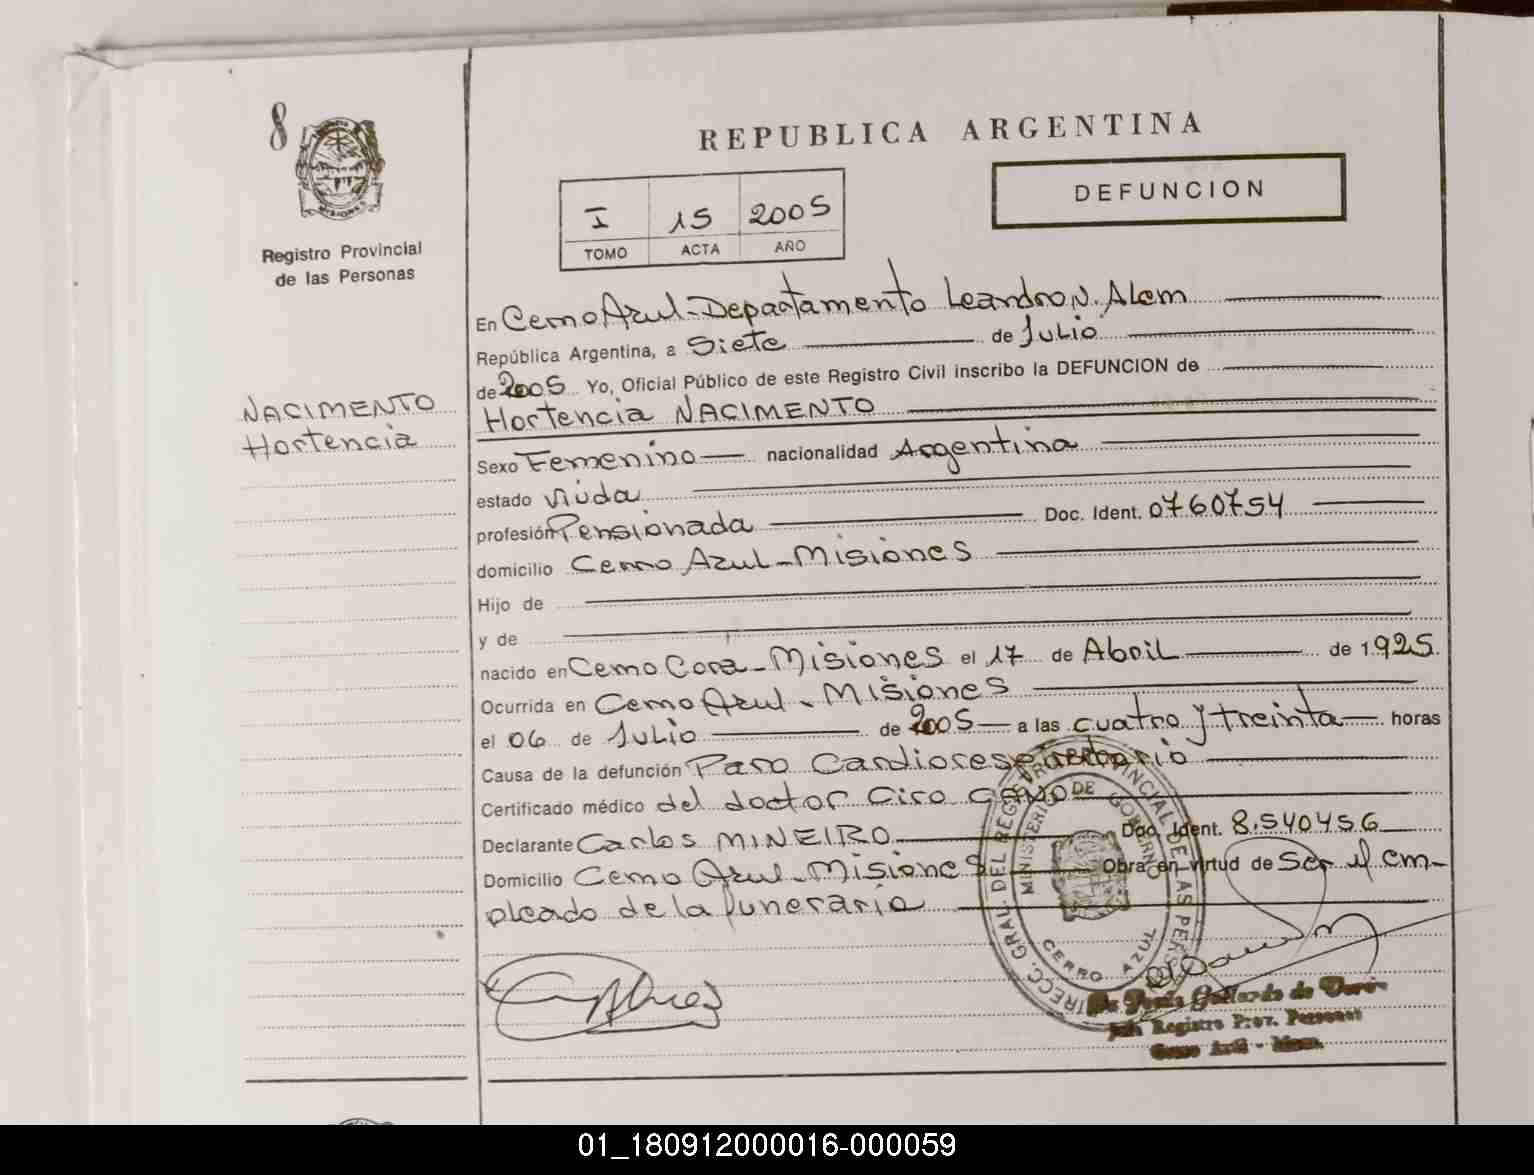 8
MISIONES
Registro Provincial
de las Personas
NACIMENTO
Hortencia
REPUBLICA ARGENTINA
I 15 2005
TOMO ACTA AÑO
DEFUNCION
En Cerro Azul - Departamento Leandro N. Alem
República Argentina, a Siete de Julio
de 2005 Yo, Oficial Público de este Registro Civil inscribo la DEFUNCION de
Hortencia NACIMENTO
Sexo Femenino nacionalidad Argentina
estado Viuda
profesión Pensionada Doc. Ident. 0760754
domicilio Cerro Azul - Misiones
Hijo de
y de
nacido en Cerro Corá - Misiones el 17 de Abril de 1925
Ocurrida en Cerro Azul - Misiones
el 06 de Julio de 2005 a las cuatro y treinta horas
Causa de la defunción Paro Cardiorespiratorio
Certificado médico del doctor Ciro
Declarante Carlos MINEIRO Doc. Ident. 8.540456
Domicilio Cerro Azul - Misiones Obra en virtud de Ser el em-
pleado de la funeraria
DIRECC. GRAL. DEL REGISTRO PROVINCIAL DE LAS PERSONAS
MINISTERIO DE GOBIERNO
CERRO AZUL
Gallardo de
Jefe Registro Prov. Personas
Cerro Azul - Mnes.
01_180912000016-000059